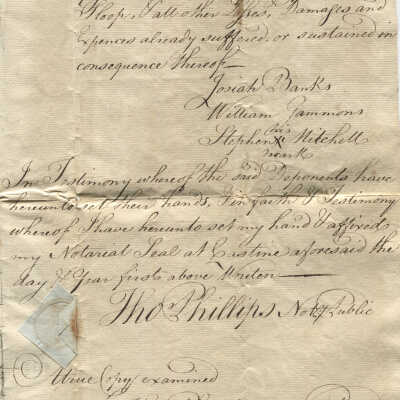 Sloop, & all other Losses, Damages and
Expences already suffered, or sustained in
consequence thereof—
Josiah Banks
William Jammons
his
Stephen X Mitchell
mark
In Testimony whereof the said Deponents have
hereunto set their hands, & in faith & Testimony
whereof I have hereunto set my hand & affixed
my Notarial Seal at Castine aforesaid the
day & Year first above Written—
Thos Phillips Noty Public
A true Copy examined